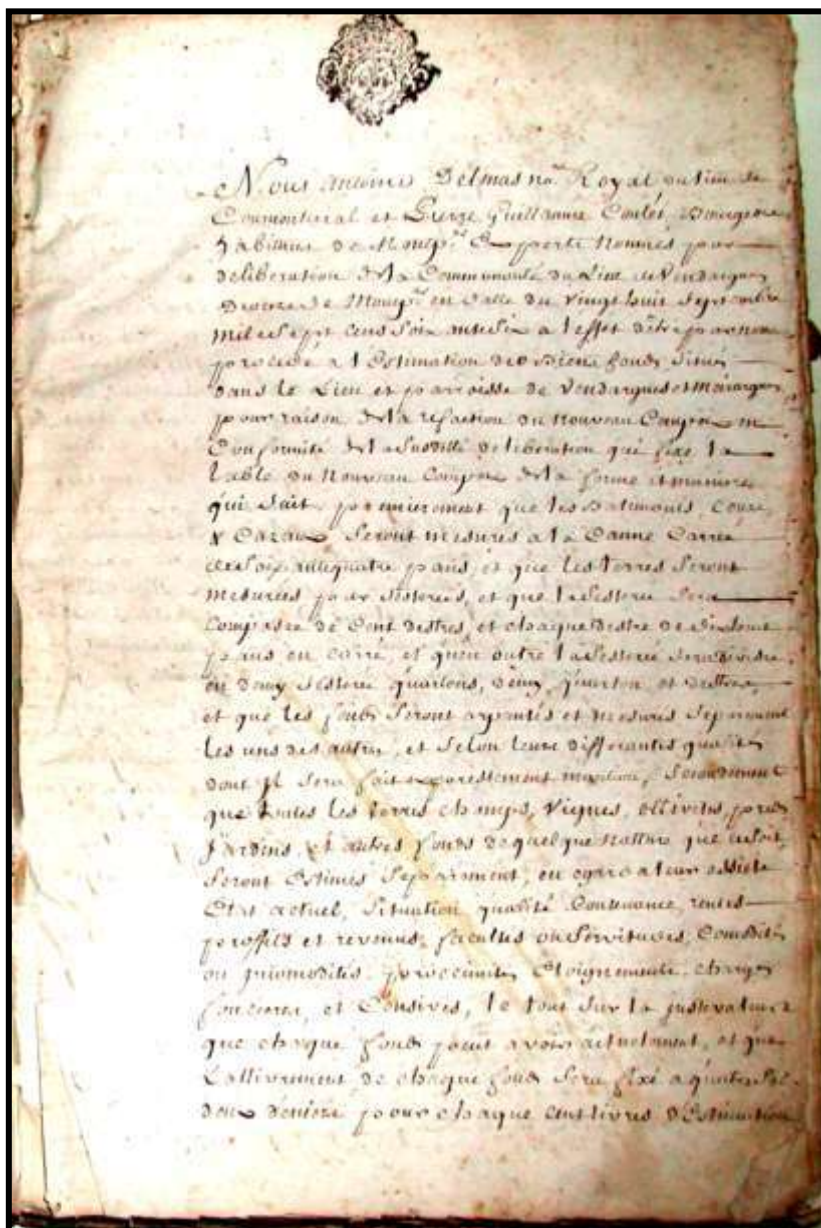 Nous Antoine Delmas nre Royal du lieu de
Cournonterral et Pierre Guillaume Coulet, Bourgeois
habitant de Montpr Experts Nommes par
deliberation de la Communauté du Lieu de Vendargues
Dioceze de Montpr en datte du vingt huit Septembre
mil Sept Cens Soixante Six a l'effet d'être par nous
procedé a l'Estimation des Biens fonds Situés
dans le Lieu et parroisse de Vendargues et Meirargues
pour raison de la refaction du Nouveau Compoix en
Conformité de la Susditte deliberation qui fixe la
table du Nouveau Compoix de la forme et maniere
qui Suit, premierement que les Batimens, Cours,
& Cazaux Seront mesures a la Canne Carrée
de Soixante quatre pans, et que les terres Seront
Mesurées par Sesterés, et que la Sesterée Sera
Composée de Cent destres, et chaque destre de
pans en Carré, et qu'en outre la Sesterée Sera divisée
en demy Sesterée quartons, demy quarton, et destres,
et que les fonds Seront arpentés et mesurés Separement
les uns des autres, et Selon leurs differantes qualités
dont il Sera fait expressement mention, Secondement
que toutes les terres champs, Vignes, ollivetes, preds
Jardins, et autres fonds de quelque natture que ce Soit,
Seront Estimes Separement, eu egard a leur assiete
Etat actuel, Situation, qualité Contenance, rentes
proffits et revenus, facultes ou Servitudes, Comodités
ou incomodités, proccimités Eloignements, charges
foncieres, et Censives, le tout Sur la juste valeur
que chaque fonds peut avoir actuelement, et que
L'allivrement de chaque fonds Sera fixé a quatre Sols
deux deniers pour chaque cent livres d'Estimation